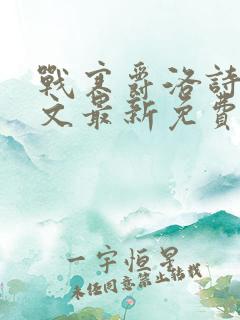 戰寒爵洛詩
文最新免費
一宇恒星
未經同意禁止轉載